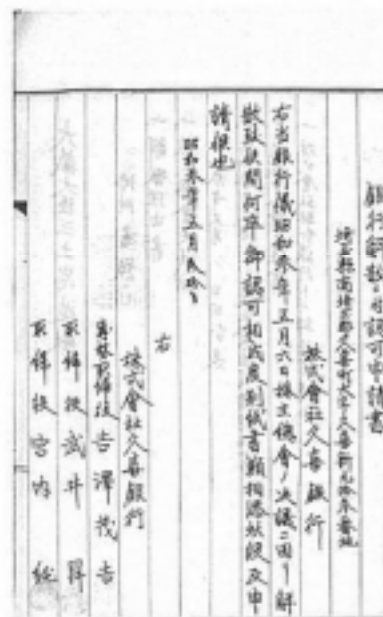 銀行解散ノ御認可申請書
埼玉縣南埼玉郡久喜町大字久喜新
株式會社久喜銀行
右当銀行儀昭和参年五月六日株主總會ノ決議ニ因リ解
散致候間何卒御認可相成度別紙書類相添此段及申
請候也
昭和参年五月
右
株式會社久喜銀行
取締役吉澤茂吉
取締役武井
取締役宮内